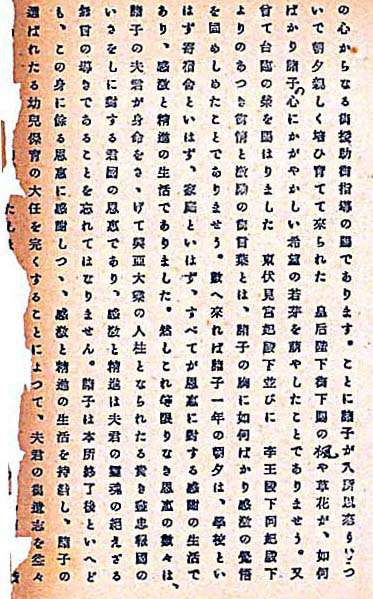 の心からなる御援助御指導の賜であります。ことに諸子が入所以來いこつ
いで朝夕親しく培ひ育てて來られた　皇后陛下御下賜の楓や草花が、如何
ばかり諸子の心にかがやかしい希望の若芽を萠やしたことでありませう。又
曾て台臨の榮を賜はりました　東伏見宮妃殿下並びに　李王殿下同妃殿下
よりのあつき御情と激勵の御言葉とは、諸子の胸に如何ばかり感激の覺悟
を固めしめたことでありませう。數へ來れば諸子一年の朝夕は、學校とい
はず寄宿舍といはず、家庭といはず、すべてが恩惠に對する感謝の生活で
あり、感激と精進の生活でありました。然しこれ等限りなき恩惠の數々は、
諸子の夫君が身命をさゝげて興亞大業の人柱となられたる貴き盡忠報國の
いさをしに對する君國の恩惠であり、感激と精進は夫君の靈魂の絕えざる
銘日の導きであることを忘れてはなりません。諸子は本所終了後といへど
も、この身に餘る恩惠に感謝しつゝ、感激と精進の生活を持續し、諸子の
選ばれたる幼兒保育の大任を完くすることによつて、夫君の御遺志を益々